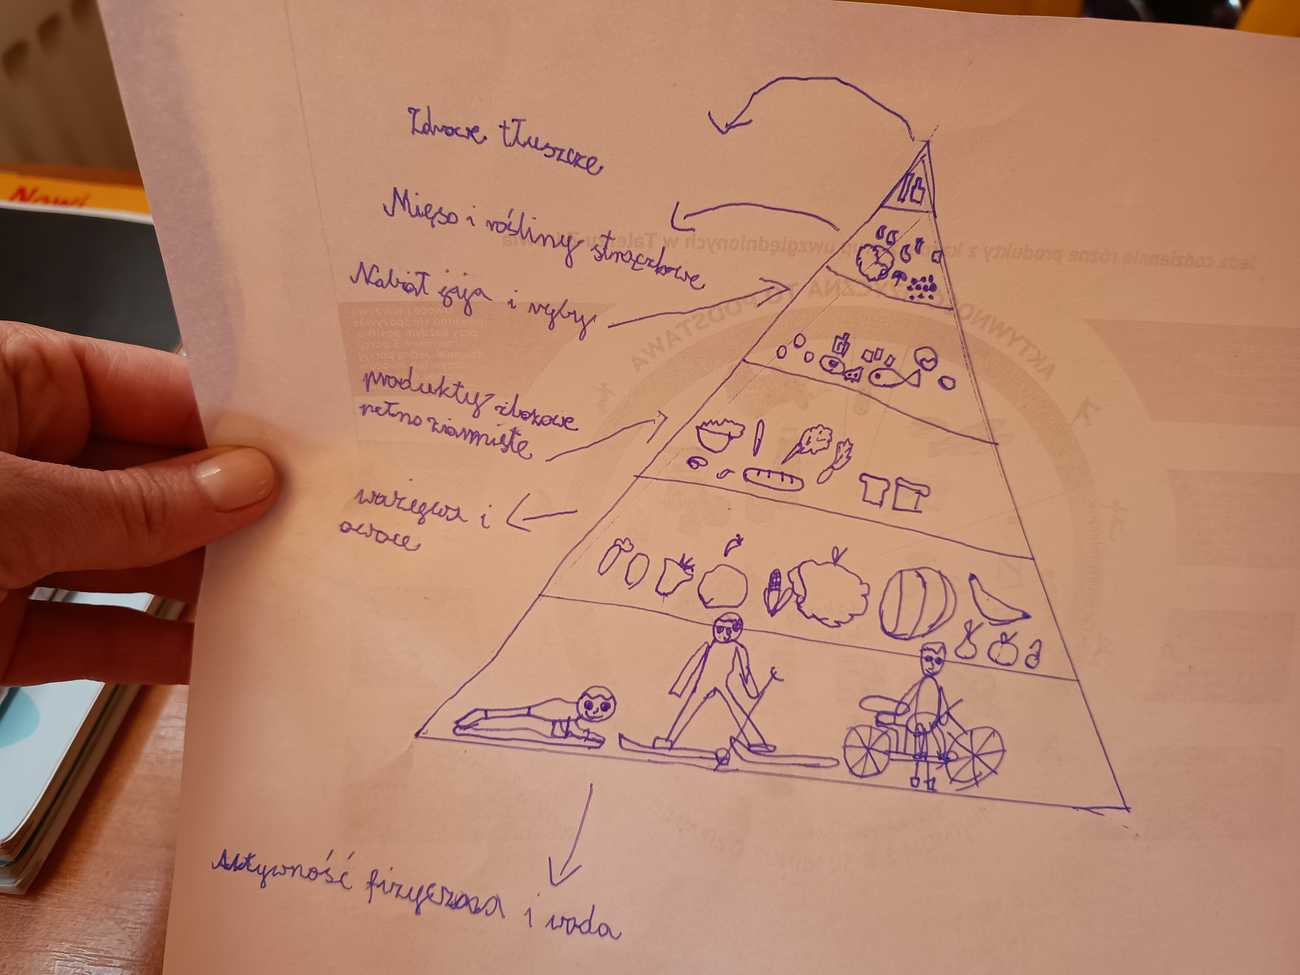 Zdrowe tłuszcze
Mięso i rośliny strączkowe
Nabiał jaja i ryby
produkty zbożowe
pełnoziarniste
warzywa i
owoce
Aktywność fizyczna i woda
Nowi
Jedz codziennie różne produkty z każdej grupy uwzględnionych w Talerzu
AKTYWNOŚĆ FIZYCZNA TO PODSTAWA